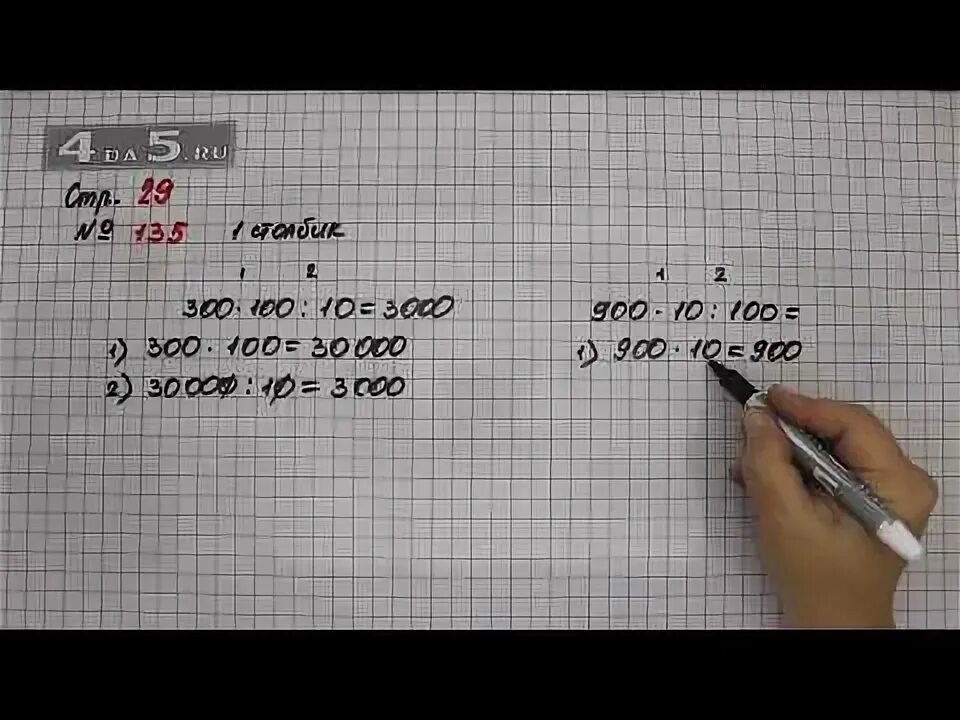 4 DA 5.RU
Стр. 29
№ 135 1 столбик
1 2
300·100:10=3000
1) 300·100=30000
2) 30000:10=3000
1 2
900·10:100=
1) 900·10=900